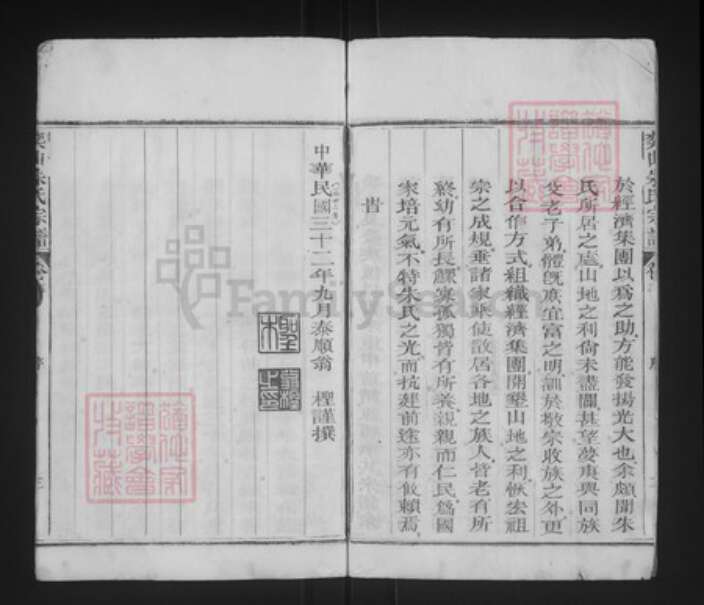 於經濟集團以爲之助方能發揚光大也余頗聞朱
氏所居之處山地之利尙未盡闢甚望夢庚與同族
父老子弟體旣庶宜富之明訓於敬宗收族之外更
以合作方式組織經濟集團開墾山地之利恢宏祖
宗之成規垂諸家乘使散居各地之族人皆老有所
終幼有所長鰥寡孤獨皆有所養親親而仁民爲國
家培元氣不特朱氏之光而抗建前途亦有攸賴焉
旹
中華民國三十二年九月泰順翁 檉謹撰
FamilySearch